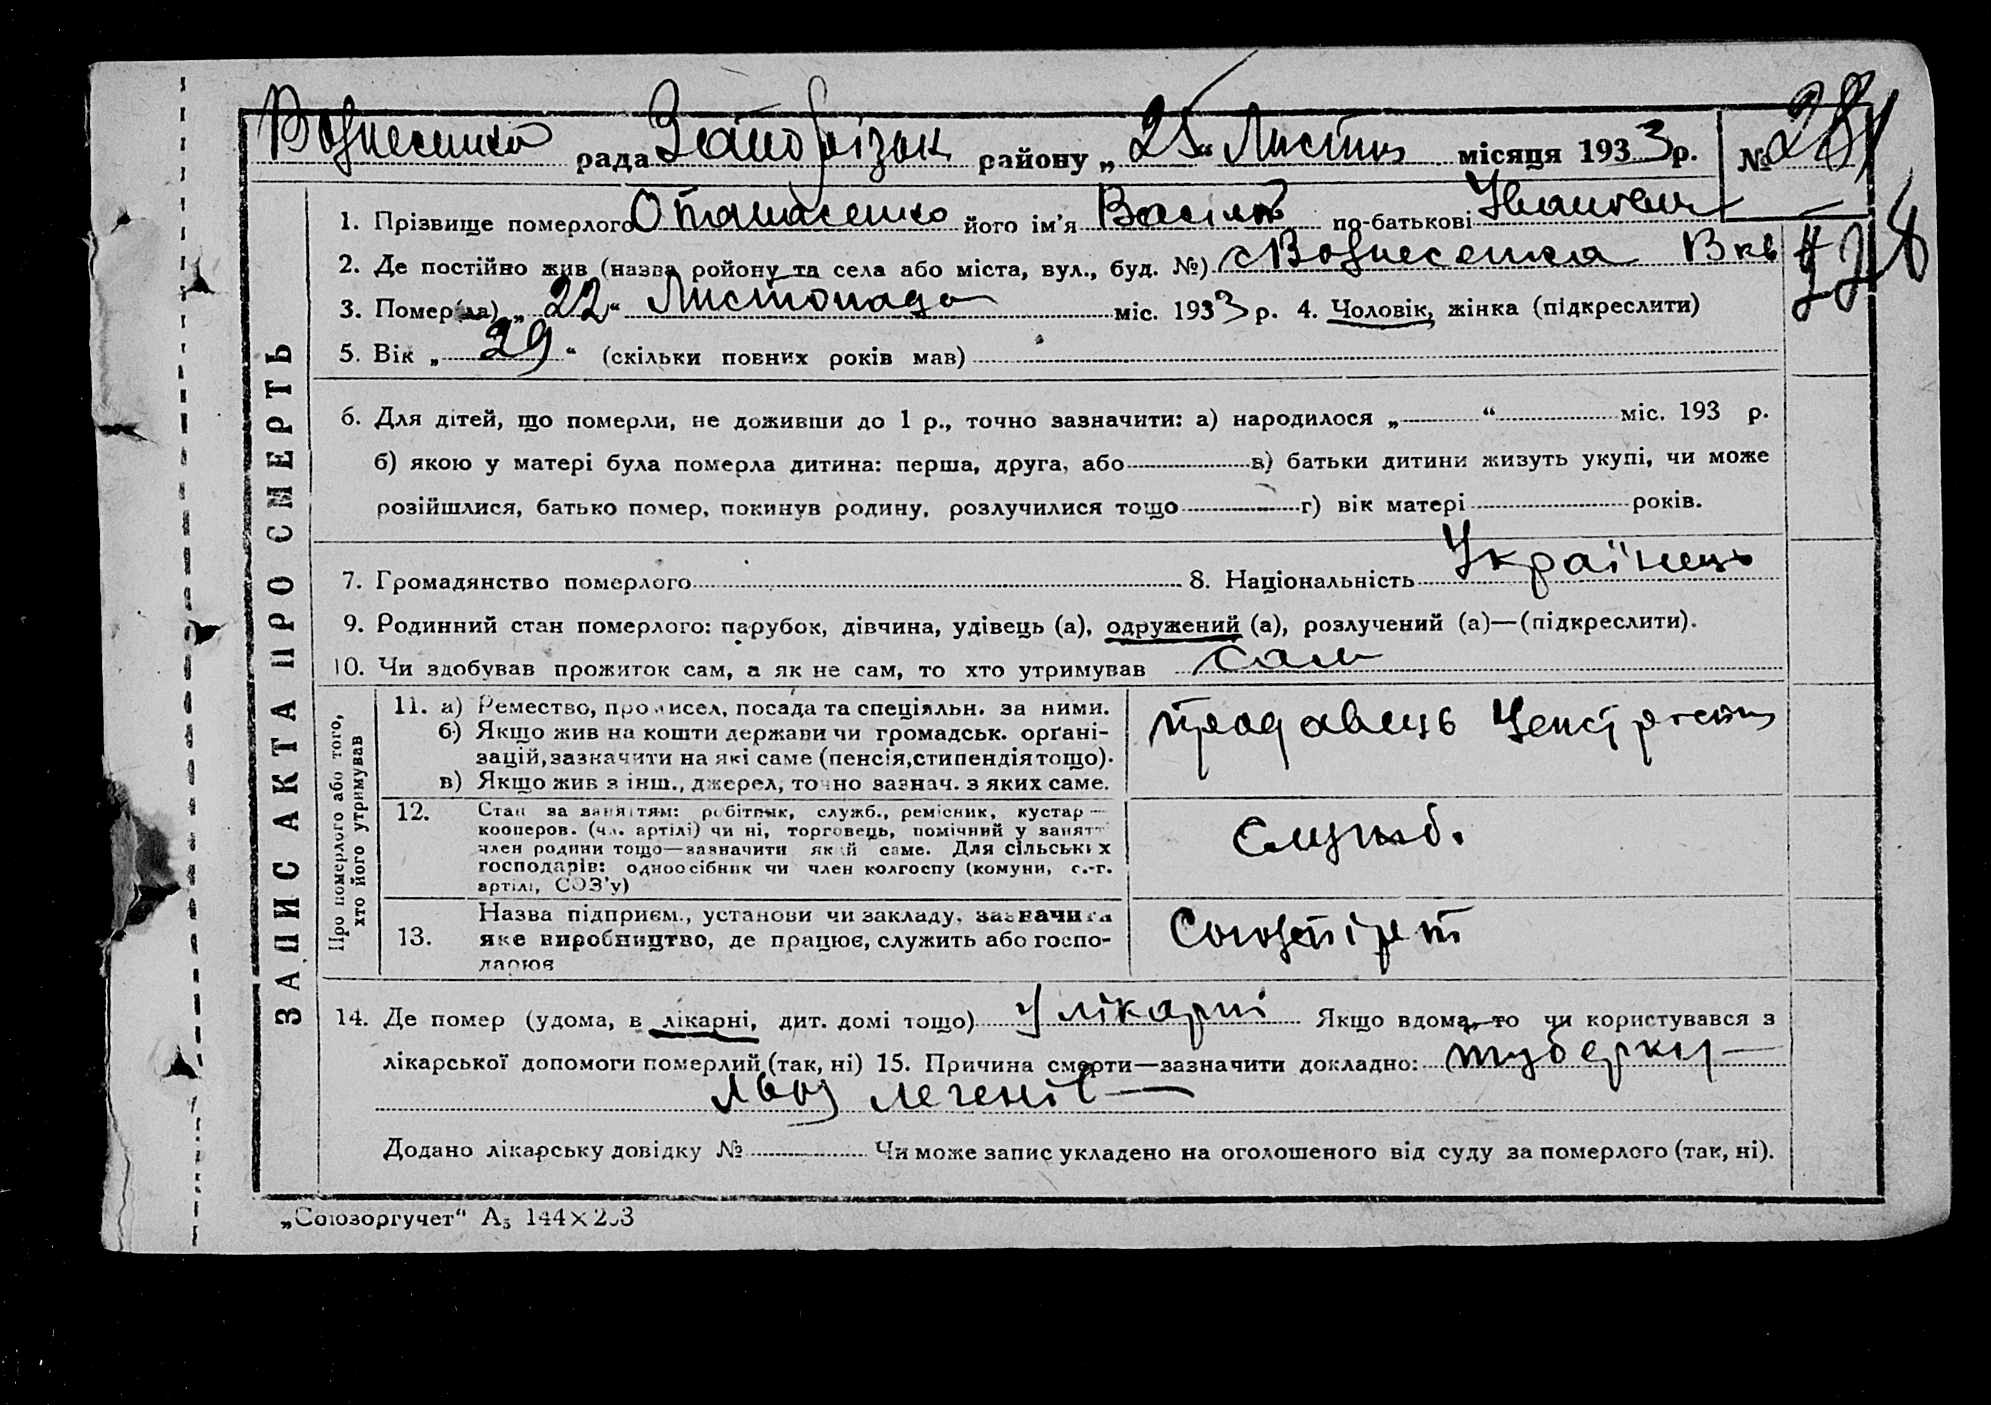 Вознесенка рада Запоріжж району „25“ Листоп місяця 1933 р. № 281
ЗАПИС АКТА ПРО СМЕРТЬ
1. Прізвище померлого Опанасенко його ім'я Василь по-батькові Іванович
2. Де постійно жив (назва ройону та села або міста, вул., буд. №) с Вознесенка
3. Помер(ла) „22“ Листопада міс. 1933 р. 4. Чоловік, жінка (підкреслити)
5. Вік „29“ (скільки повних років мав)
6. Для дітей, що померли, не доживши до 1 р., точно зазначити: а) народилося „ “ міс. 193 р.
б) якою у матері була померла дитина: перша, друга, або в) батьки дитини живуть укупі, чи може
розійшлися, батько помер, покинув родину, розлучилися тощо г) вік матері років.
7. Громадянство померлого 8. Національність Українець
9. Родинний стан померлого: парубок, дівчина, удівець (а), одружений (а), розлучений (а)—(підкреслити).
10. Чи здобував прожиток сам, а як не сам, то хто утримував сам
Про померлого або того,
хто його утримував
11. а) Ремество, промисел, посада та спеціяльн. за ними.
б) Якщо жив на кошти держави чи громадськ. орґані-
зацій, зазначити на які саме (пенсія, стипендія тощо).
в) Якщо жив з інш., джерел, точно зазнач. з яких саме.
продавець
12. Стан за заняттям: робітник, служб., ремісник, кустар —
кооперов. (чл. артілі) чи ні, торговець, помічний у занятт
член родини тощо—зазначити який саме. Для сільських
господарів: одноосібник чи член колгоспу (комуни, с.-г.
артілі, СОЗ'у)
Служб.
13. Назва підприєм., установи чи закладу, зазначити
яке виробництво, де працює, служить або госпо-
дарює
14. Де помер (удома, в лікарні, дит. домі тощо) у лікарні Якщо вдома, то чи користувався з
лікарської допомоги померлий (так, ні) 15. Причина смерти—зазначити докладно: туберку-
льоз легенів
Додано лікарську довідку № Чи може запис укладено на оголошеного від суду за померлого (так, ні).
„Союзоргучет“ А₅ 144×203